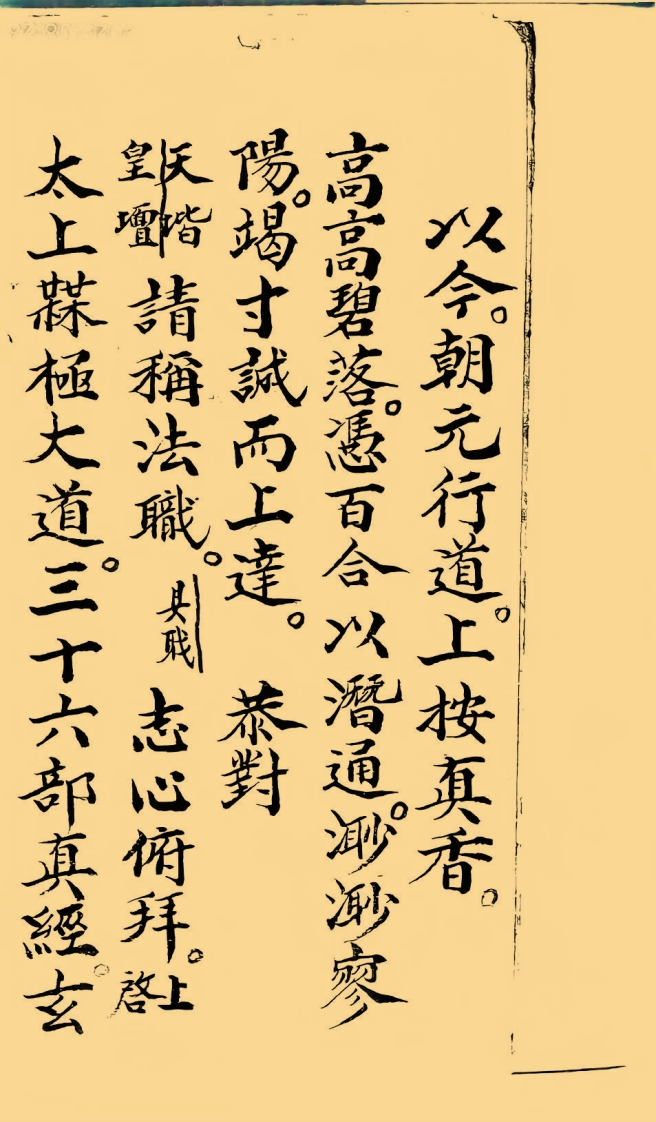 以今。朝元行道。上按真香。
高高碧落。憑百合以潛通。渺渺寥
陽。竭寸誠而上達。恭對
天堦
皇壇
請稱法職。具職志心俯拜。上啓
太上橆極大道。三十六部真經。玄